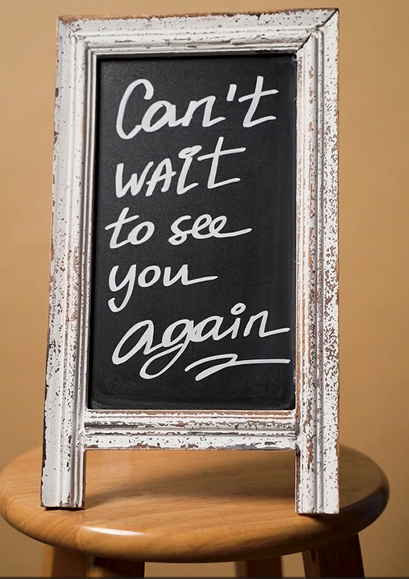 Can't
wait
to see
you
again